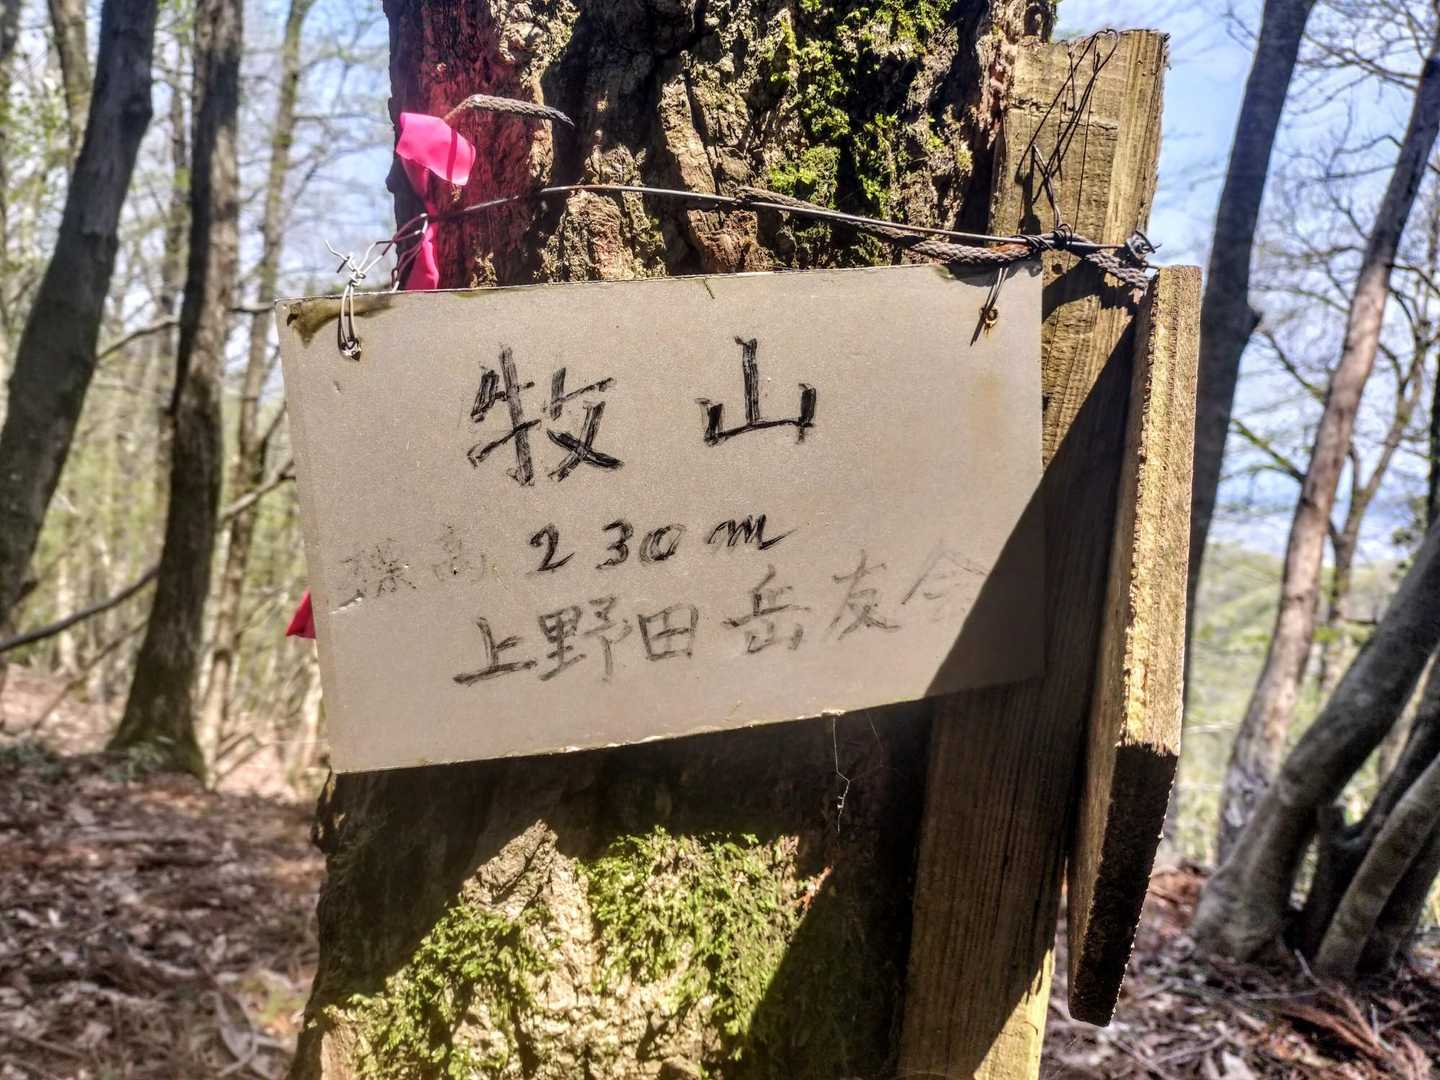 牧山
標高 230m
上野田岳友会